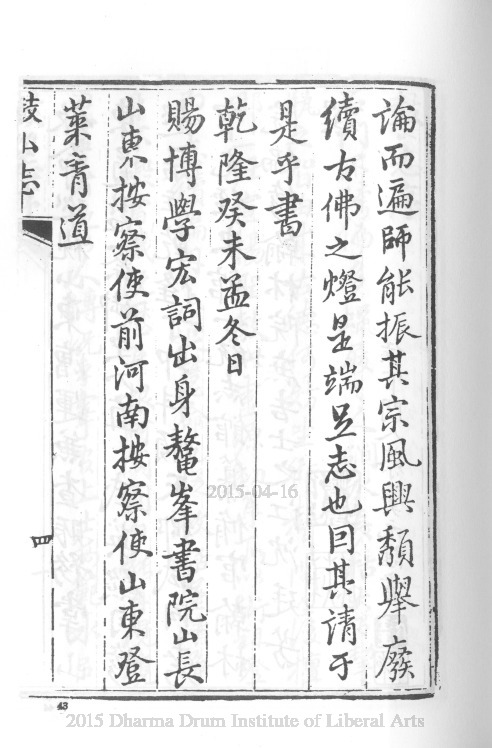 論而遍師能振其宗風興頹舉廢
續古佛之燈是端足志也囙其請于
是乎書
乾隆癸未孟冬日
賜博學宏詞出身鰲峯書院山長
山東按察使前河南按察使山東登
萊青道
鼓山志
四
43
2015-04-16
2015 Dharma Drum Institute of Liberal Arts